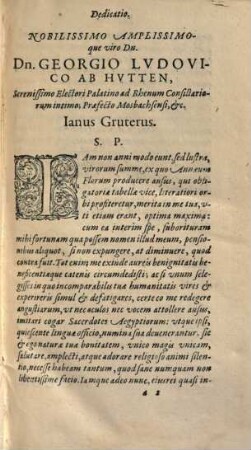 Dedicatio.
NOBILISSIMO AMPLISSIMO-
que viro Dn.
Dn. GEORGIO LVDOVI-
CO AB HVTTEN,
Serenissimo Electori Palatino ad Rhenum Consiliario-
rum intimo, Præfecto Mosbachensi, &c.
Ianus Gruterus.
S. P.
IAm non anni modo eunt, sed lustra,
virorum summe, ex quo Annæum
Florum producere ausus, qui obli-
gatoriæ tabellæ vice, literatiori or-
bi profiteretur, merita in me tua, vt-
ut etiam erant, optima maxima:
cum ea interim spe, suborituram
mihi fortunam qua possem nomen illud meum, pensio-
nibus aliquot, si non expungere, at diminuere, quod
contra fuit. Tot enim me exinde aureis benignitatis be-
neficentiæque catenis circumdedisti: ac si vnum sele-
gisses in quo incomparabilis tua humanitatis vires &
experireris simul & defatigares, certe eo me redegere
angustiarum, vt nec oculos nec vocem attollere ausus,
imitari cogar Sacerdotes Ægyptiorum: vtque ipsi,
quiescente lingua officio, numina sua devenerantur, sic
& ego naturæ tua bonitatem, vnico magis vnicam,
salutare, amplecti, atque adorare religioso animi silen-
tio, necesse habeam tantum, quod sane numquam non
libentissime facio. Iamque adeo nunc, eiuret quasi in-
a 2